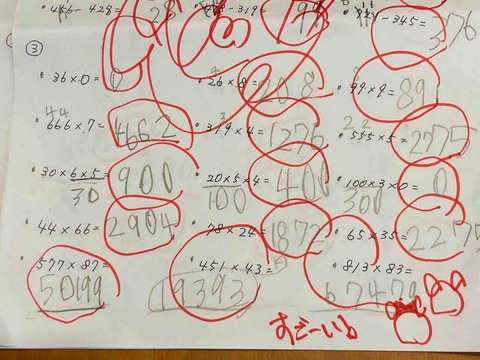 456-428= 28 -319= 99 -345= 376
③
・36×0= 0 ・26×8= 208 ・99×9= 891
・666×7= 4662 ・319×4= 1276 ・555×5= 2775
・30×6×5= 900 ・20×5×4= 400 ・100×3×0= 0
30 100 300
・44×66= 2904 ・78×24= 1872 ・65×35= 2275
・577×87= ・451×43= ・813×83=
50199 19393 67479
すごーい!